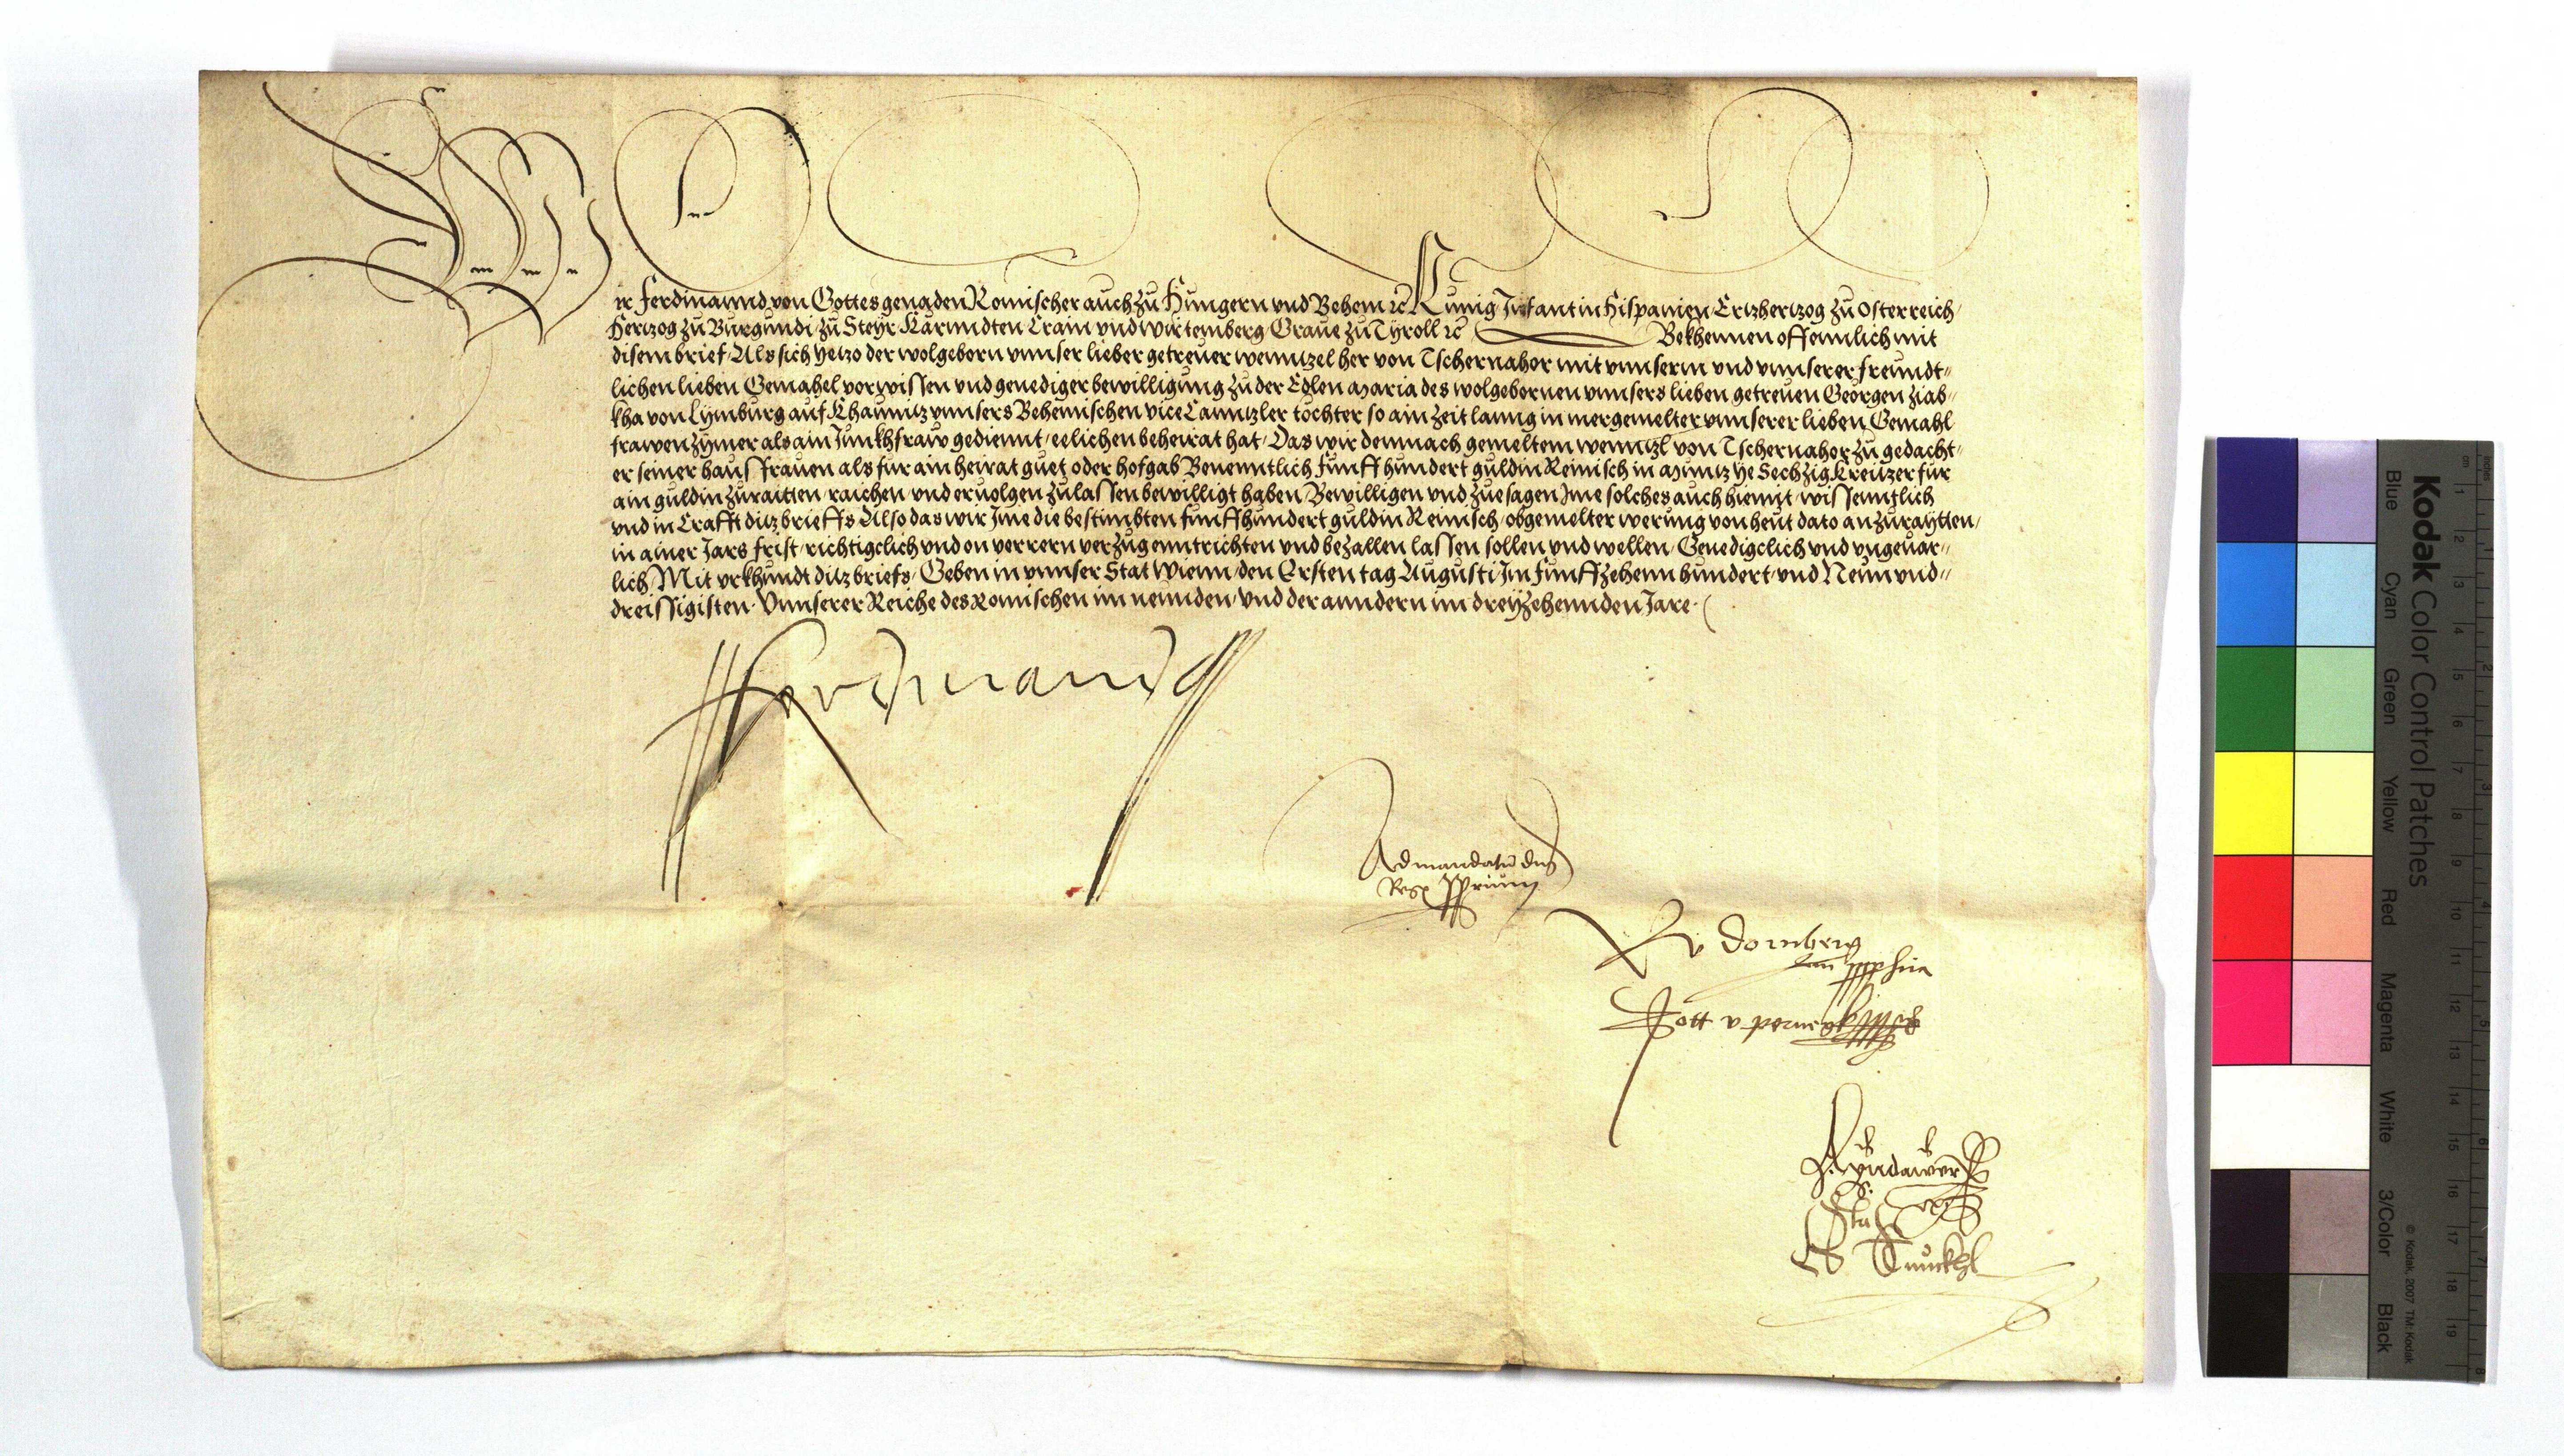 Wir Ferdinannd von Gottes genaden Romischer auch zu Hungern vnd Behem ꝛc Kunig Infant in Hispanien, Ertzhertzog zu Osterreich,
Hertzog zu Burgundi, zu Steyr Kärnndten Crain vnd Wirtemberg Graue zu Tyroll ꝛc Bekhennen offennlich mit
disem brief, Als sich yetzo der wolgeborn vnnser lieber getreuer wenntzel her von Tschernahor mit vnnserm vnd vnnserer freundt-
lichen lieben Gemahel vorwissen vnd genediger bewilligung zu der Edlen Maria des wolgebornen vnnsers lieben getreuen Georgen ziab-
kha von Lymburg auf Khaunitz vnnsers Behemischen vice Canntzler tochter so ain zeit lanng in mergemelter vnnserer lieben Gemahl
frawen zymer als ain Junkhfraw gediennt, eelichen beheirat hat, Das wir demnach gemeltem wenntzl von Tschernahor zu gedacht-
er seiner hausfrauen als für ain heirat guet oder hofgab Benenntlich funff hundert guldin Reinisch in Muntz ye Sechzig Kreutzer für
ain guldin zuraitten raichen vnd eruolgen zulassen bewilligt haben Bewilligen vnd zuesagen Ime solches auch hiemit wissenntlich
vnd in Crafft ditz brieffs Also das wir Ime die bestimbten funffhundert guldin Reinisch, obgemelter werung von heut dato anzuraytten,
in ainer Jars frist, richtigclich vnd on verrern verzug enntrichten vnd bezallen lassen sollen vnd wellen, Genedigclich vnd vngeuar-
lich, Mit vrkhundt ditz briefs, Geben in vnnser Stat Wienn, den Ersten tag Augusti Im funffzehenn hundert vnd Neun vnd-
dreissigisten. Vnnserer Reiche des Romischen im neunden, vnd der anndern im dreyzehennden Jare.
Ferdinand
Ad mandatu dni
Regis pprium
v Dornberg
Jott v perneg